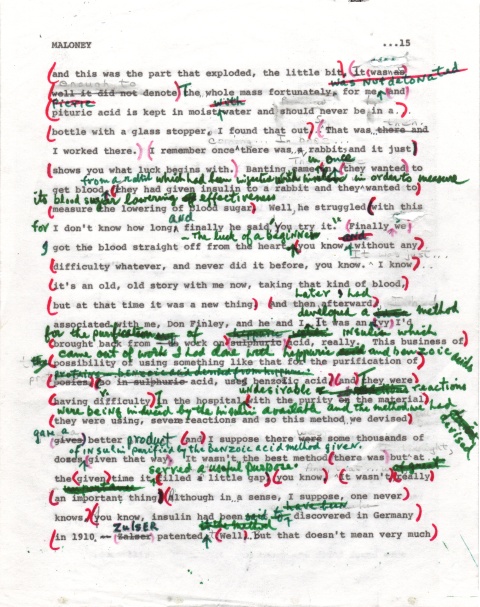 MALONEY ...15
(and this was the part that exploded, the little bit. (It was as
was not detonated
well it did not denote) The whole mass fortunately, for me, and)
Picric with
pituric acid is kept in moist water and should never be in a
bottle with a glass stopper, I found that out. (That was there and
I worked there.) (I remember once there was a rabbit and it just)
shows you what luck begins with. Banting came in once (they wanted to
from a rabbit which had been injected with insulin in order to measure
get blood, (they had given insulin to a rabbit and they wanted to)
its blood sugar lowering effectiveness
(measure the lowering of blood sugar) Well, he struggled (with this
and
for I don't know how long, finally he said "You try it." (Finally, we)
- The luck of a beginner
I got the blood straight off from the heart, (you know, without any
difficulty whatever, and never did it before, you know. I know
it's an old, old story with me now, taking that kind of blood,)
(but at that time it was a new thing) (and then afterward,
Later I had
developed a method
associated with me, Don Finley, and he and I. It was an (vy) I'd
for the purification of insulin which
brought back from work on sulphuric acid, really. This business of
came out of work I had done with hippuric and benzoic acids
possibility of using something like that for the purification of
so in sulphuric acid, used benzoic acid) (and they were
undesirable reactions
having difficulty) In the hospital (with the purity of the material
were being induced by the insulin available and the method we had
devised
they were using, severe reactions and so this method we devised)
gave a product
given) better (and I suppose there were some thousands of
of insulin purified by the benzoic acid method given.
doses given that way. It wasn't the best method (there was but at
served a useful purpose.
the (given) time it filled a little gap (you know) It wasn't (really)
an important thing) (Although in a sense, I suppose, one never
have been
knows) (you know, insulin had been discovered in Germany
ZULSER the method
(in 1910, -- (Zulser) patented (Well), but that doesn't mean very much)